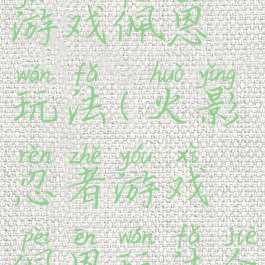 游戏佩恩
wán fǎ huǒ yǐng
玩法(火影
rěn zhě yóu xì
忍者游戏
pèi ēn wán fǎ jiè
佩恩玩法介